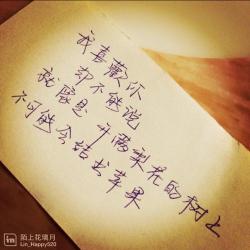 我喜歡你
却不能说
就像是 开满梨花的树上
不可能会结出苹果
in 陌上花璃月
Lin_Happy520